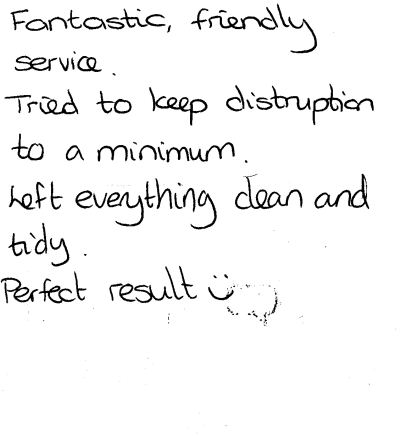 Fantastic, friendly
service.
Tried to keep distruption
to a minimum.
Left everything clean and
tidy.
Perfect result ü